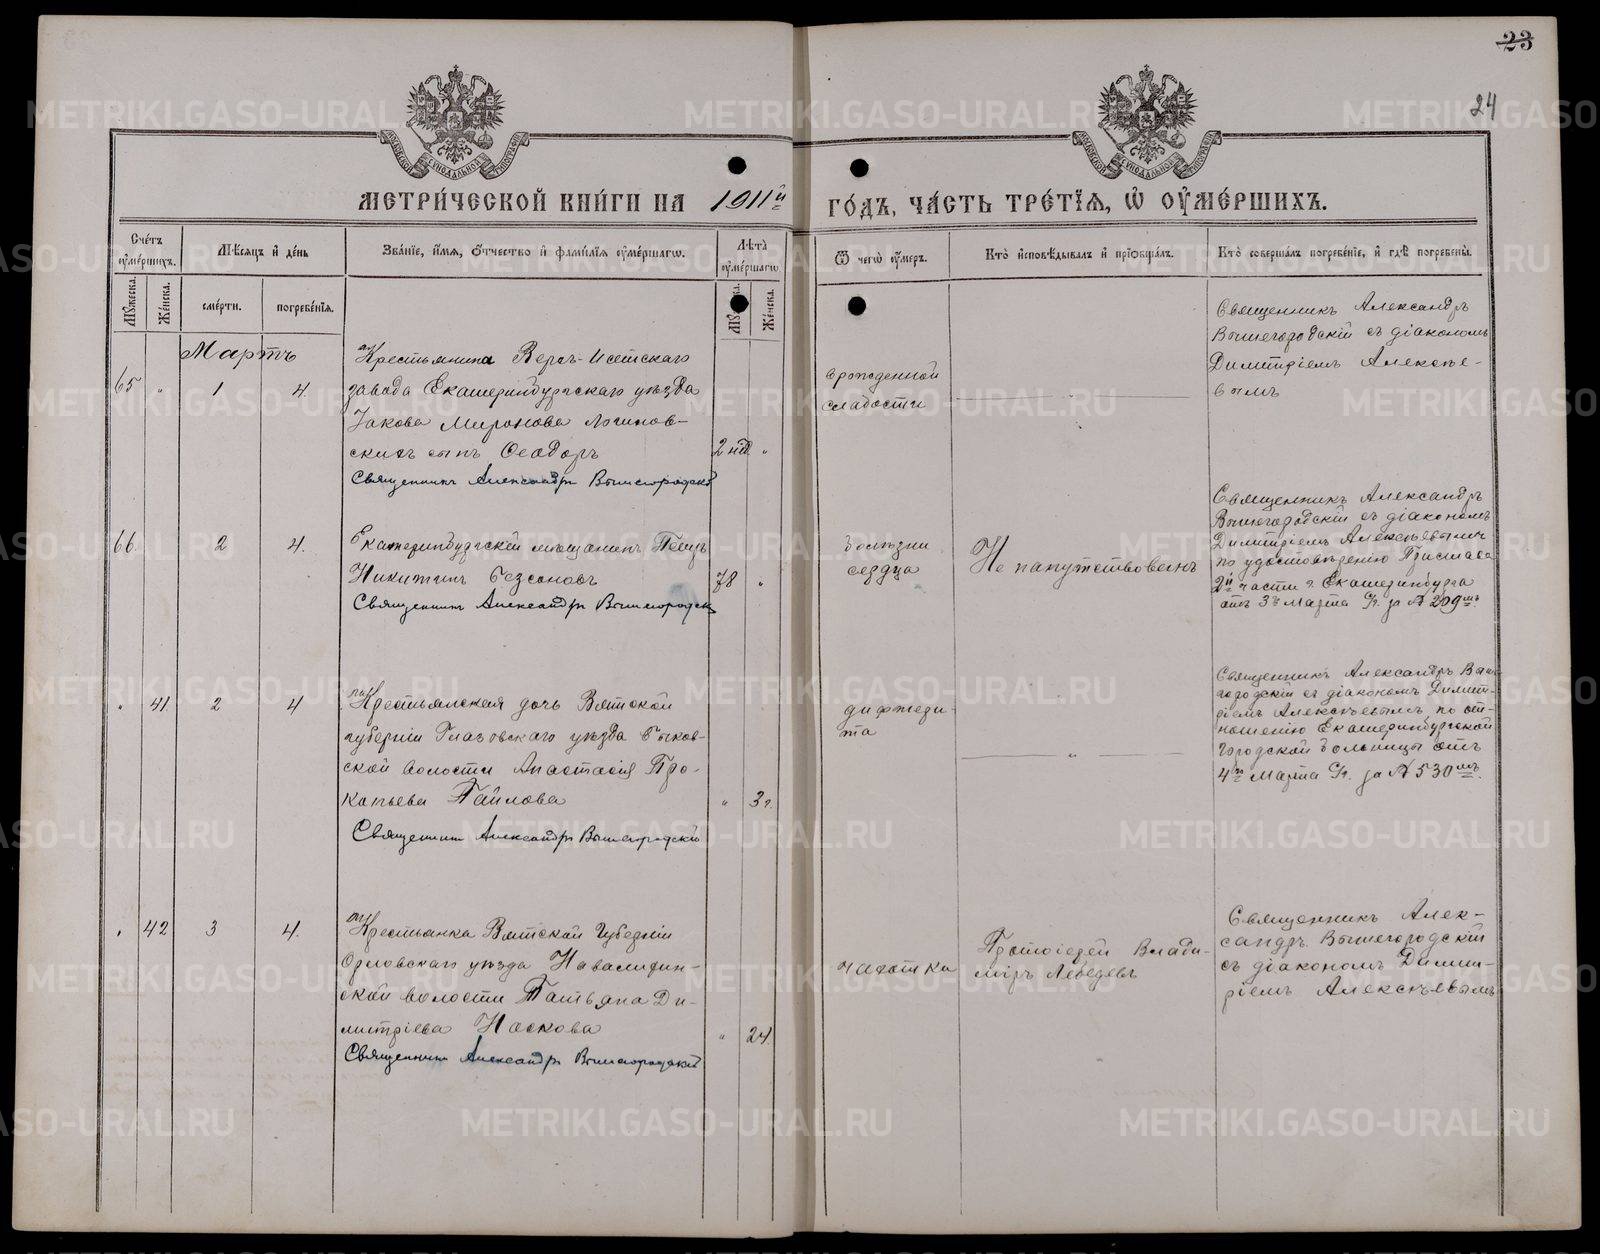 23
24
МЕТРИ́ЧЕСКОЙ КНИ́ГИ НА 1911й ГО́ДЪ, ЧА́СТЬ ТРЕ́ТІЯ, Ѡ ОУМЕ́РШИХЪ.
Сче́тъ оуме́ршихъ.
Мѣ́сяцъ и де́нь
Зва́нїе, и́мя, ѻ҆́тчество и фами́лїя оуме́ршагѡ.
Лѣ́та оуме́ршагѡ.
Ѿ чегѡ̀ оу́меръ.
Кто̀ исповѣ́дывалъ и прїобща́лъ.
Кто̀ соверша́лъ погребе́нїе, и гдѣ̀ погребены̀.
Му́жеска.
Же́нска.
сме́рти.
погребе́нїя.
Же́нска.
Мартъ
65 " 1 4.
Крестьянина Верхъ-Исетскаго
завода Екатеринбургскаго уѣзда
Іакова Миронова Логинов-
скихъ сынъ Ѳеодоръ
2 нед. "
Священникъ Александръ Вышегородскій
врожденной
слабости
Священникъ Александръ
Вышегородскій съ діакономъ
Димитріемъ Алексѣе-
вымъ
66. 2 4.
Екатеринбургскій мѣщанинъ Петръ
Никитинъ Безсоновъ
78 "
Священникъ Александръ Вышегородскій
болѣзни
сердца
Не напутствованъ
Священникъ Александръ
Вышегородскій съ діакономъ
Димитріемъ Алексѣевымъ
по удостовѣренію Пристава
2й части г. Екатеринбурга
отъ 3го Марта с/г. за № 209мъ.
" 41. 2 4
Крестьянская дочь Вятской
губерніи Глазовскаго уѣзда Быков-
ской волости Анастасія Про-
копьева
" 3 г.
Священникъ Александръ Вышегородскій
дифтери-
та
"
Священникъ Александръ Выше-
городскій съ діакономъ Димит-
ріемъ Алексѣевымъ по от-
ношенію Екатеринбургской
городской больницы отъ
4го Марта с/г. за № 530мъ.
" 42 3 4.
Крестьянка Вятской Губерніи
Орловскаго уѣзда
ской волости Татьяна Ди-
митріева Носкова
" 24.
Священникъ Александръ Вышегородскій
чахотка
Протоіерей Влади-
міръ Лебедевъ
Священникъ Алек-
сандръ Вышегородскій
съ діакономъ Димит-
ріемъ Алексѣевымъ
METRIKI.GASO-URAL.RU